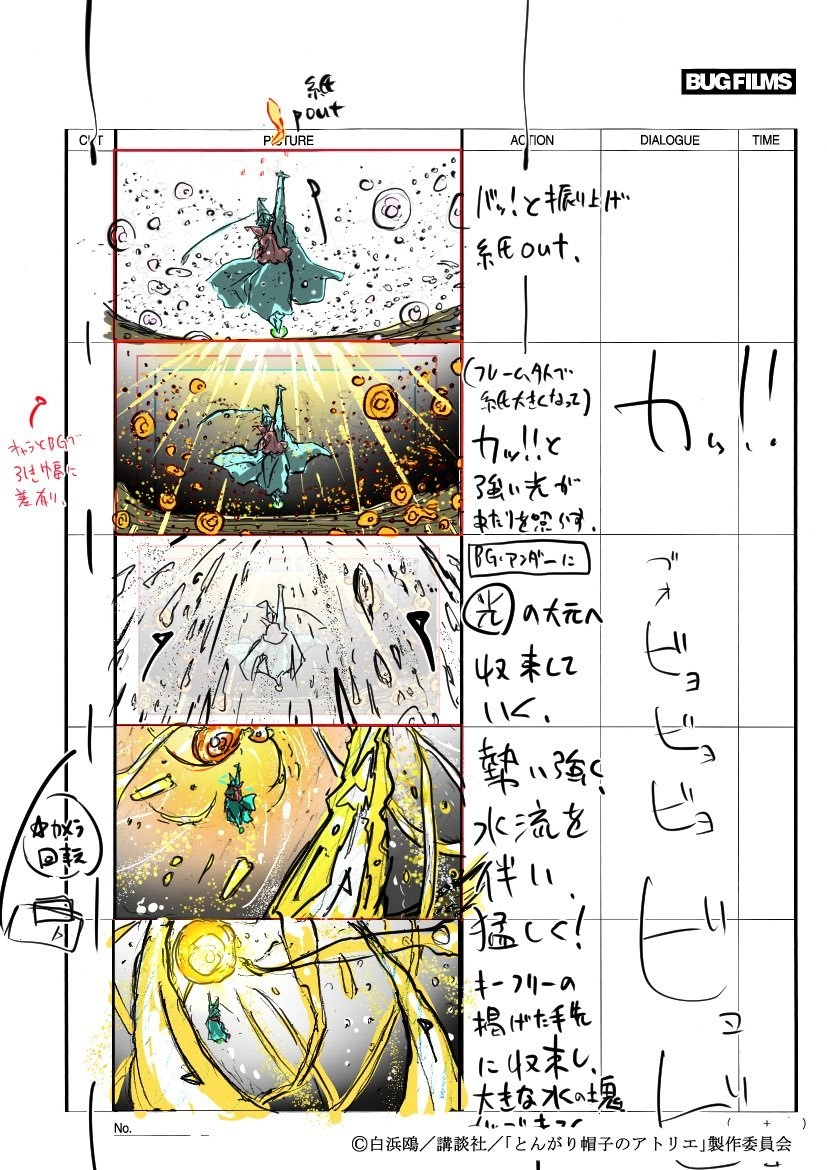 BUG FILMS
紙
out
CUT
PICTURE
ACTION
DIALOGUE
TIME
バッ!と振り上げ
紙out、
(フレーム外で
紙大きくなって)
カッ!!と
強い光が
あたりを照らす。
カッ!!
キャラとBGで
引き幅に
差有り。
BG・アンダーに
光の大元へ
収束して
いく、
ゴォ
ビョ
ビョ
ビョ
勢い強く、
水流を
伴い、
猛しく!
カメラ
回転
キーフリーの
掲げた手先
に収束し、
大きな水の塊
ビョ
ビ
No.
( + )
©白浜鴎/講談社/「とんがり帽子のアトリエ」製作委員会